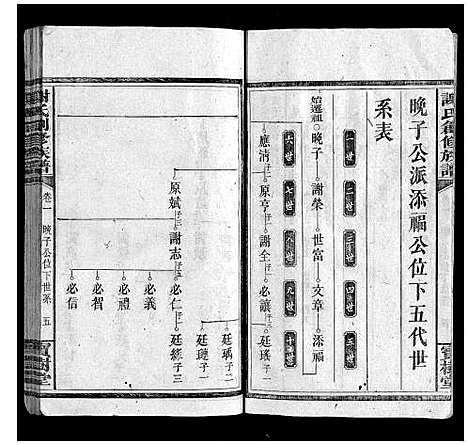 謝氏創修族譜
晚子公派添福公位下五代世
系表
一世 二世 三世 四世 五世
始遷祖 晚子 謝榮 世富 文章 添福
六世 七世 八世 九世 十世
應清 原亨 謝全 必讓 廷瑤
廷瑀子一
廷璉子一
原斌 謝志 必仁 廷經子三
必義
必禮
必智
必信
謝氏創修族譜
卷一 晚子公位下世系 五
寶樹堂
寶樹堂